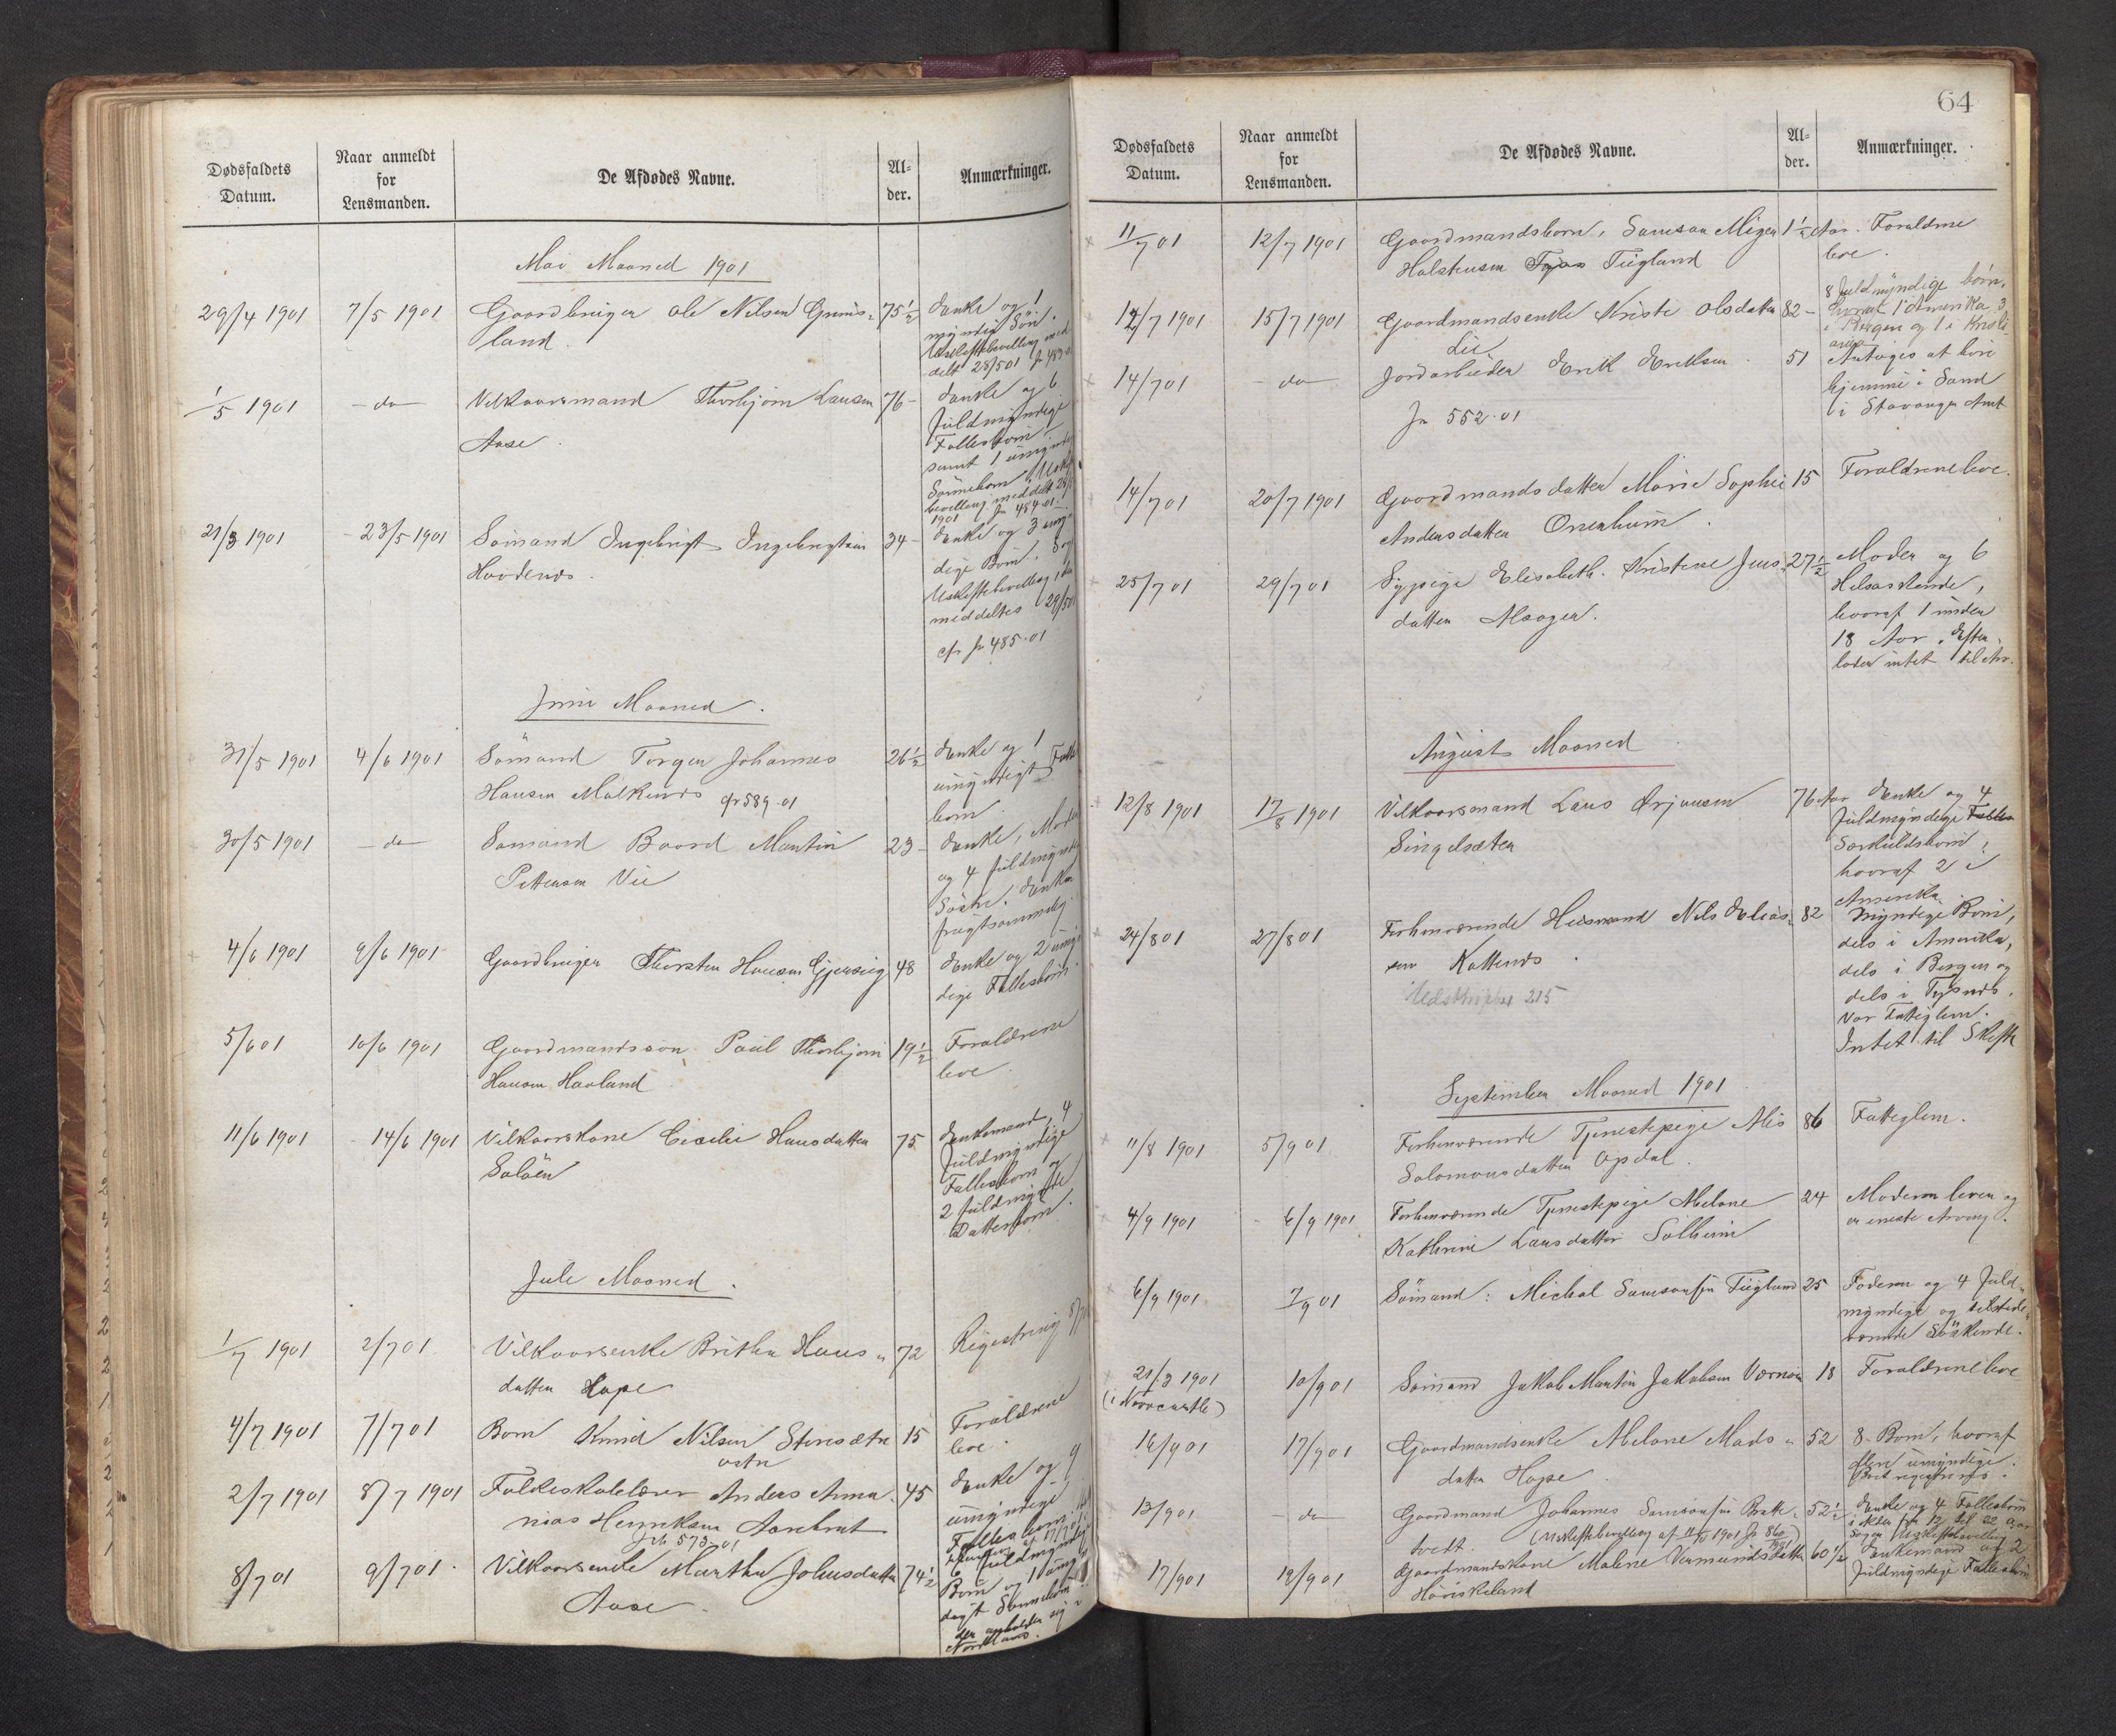 Dødsfaldets
Datum.
Naar anmeldt
for
Lensmanden.
De Afdødes Navne.
Al-
der.
Anmærkninger.
Mai Maaned 1901
29/4 1901 7/5 1901 Gaardbruger Ole Nilsen Grims- 75½ Enke og 1
land. myndig Søn.
Uskiftebevilling med
delt 28/5 01
1/5 1901 - do - Vilkaarsmand Thorbjørn Larsen 76- Enke og 6
Aase. fuldmyndige
Fællesbørn
samt 1 umyndig
Sønnebarn
bevilling meddelt
1901 Jr 484.01
21/3 1901 - 23/5 1901 Sømand Ingebrigt Ingebrigtsen 34- Enke og 3 umyn
dige Børn.
Uskiftebevilling
meddeltes 29/5 01
cfr Jr 485.01
Juni Maaned.
31/5 1901 4/6 1901 Sømand Torger Johannes 26½ Enke og 1
Hansen Malkenes cfr 589.01 umyndigt
barn
30/5 1901 - do - Sømand Baard Martin 23- Enke, Moder
Pettersen Vie og 4 fuldmyndige
Søstre. Enken
frugtsommelig.
4/6 1901 9/6 1901 Gaardbruger Thorsten Hansen Gjersvig 48 Enke og 2 umyn
dige Fællesbørn
5/6 01 10/6 1901 Gaardmandssøn Paul Thorbjørn 19½ Forældrene
Hansen Haaland leve.
11/6 1901 - 14/6 1901 Vilkaarskone Cicilie Hansdatter 75. Enkemand, 4
Saløen fuldmyndige
Fællesbørn og
2 fuldmyndige
Datterbørn.
Juli Maaned.
1/7 1901 2/7 01 Vilkaarsenke Britha Hans- 72 Rigestrering
datter Hope
4/7 1901 7/7 01 Barn Knud Nilsen Stensæter 15 Forældrene
østre leve.
2/7 1901 8/7 1901 Folkeskolelærer Anders Anna- 45 Enke og 9
nias Henriksen Aarebrot umyndige
Jr 573.01 Fællesbørn.
8/7 01 9/7 01 Vilkaarsenke Martha Johnsdatter 74½ 6 fuldmyndige
Aase. Børn og 1 umyn
digt Sønnebarn
der opholder sig i
Nordland.
64
Dødsfaldets
Datum.
Naar anmeldt
for
Lensmanden.
De Afdødes Navne.
Al-
der.
Anmærkninger.
11/7 01 12/7 1901 Gaardmandsbarn, Samson Mikal 1½ Aar. Forældrene
Halstensen Teigland leve.
12/7 1901 15/7 1901 Gaardmandsenke Kristi Olsdatter 82- 8 fuldmyndige børn,
Lie hvoraf 1 i Amerika 3
i Bergen og 1 i Kristi
ania
14/7 01 - do - Jordarbeider Erik Eriksen 51 Antages at høre
Jr 552.01 hjemme i Sand
i Stavanger Amt
14/7 01 20/7 1901 Gaardmandsdatter Marie Sophie 15 Forældrene leve.
Andersdatter Onarheim.
25/7 01 29/7 01 Sypige Elisabeth Kristine Jens- 27½ Moder og 6
datter Alsager. Helsøskende,
hvoraf 1 under
18 Aar. Efter-
lader intet til Arv.
August Maaned
12/8 1901 17/8 1901 Vilkaarsmand Lars Ørjansen 76 Aar Enke og 4
Singelsæter fuldmyndige
Særkuldsbørn,
hvoraf 2 i
Amerika.
24/8 01 27/8 01 Forhenværende Husmand Nils Elias- 82 Myndige Børn,
sen Kattenes. dels i Amerika,
215 dels i Bergen og
dels i Tysnes.
Var Fattiglem.
Intet til Skifte
September Maaned 1901
11/8 1901 5/9 01 Forhenværende Tjenestepige Alis 86 Fattiglem.
Salomonsdatter Opdal.
4/9 1901 - 6/9 1901 Forhenværende Tjenestepige Malene 24 Moderen lever og
Kathrine Larsdatter Solheim er eneste Arving.
6/9 1901 7/9 01 Sømand: Michal Samsonsen Teigland 25 Faderen og 4 fuld-
myndige og tilstede-
værende Søskende.
21/3 1901 10/9 01 Sømand Jakob Martin Jakobsen Værnøen 18 Forældrene leve
(i Newcastle)
16/9 01 17/9 01 Gaardmandsenke Malene Mads- 52 8 Børn, hvoraf
datter Hope flere umyndige.
Boet registreres.
13/9 01 - do Gaardmand Johannes Samsonsen Bratte- 52½ Enke og 4 Fællesbørn
tvedt. (Uskiftebevilling af 1901 Jr 860) i Alder fra 12 til 22 Aar
Søger Uskiftebevilling
17/9 01 19/9 01 Gaardmandskone Malene Vermundsdatter 60½ Enkemand og 2
Høviskeland fuldmyndige Fællesbørn